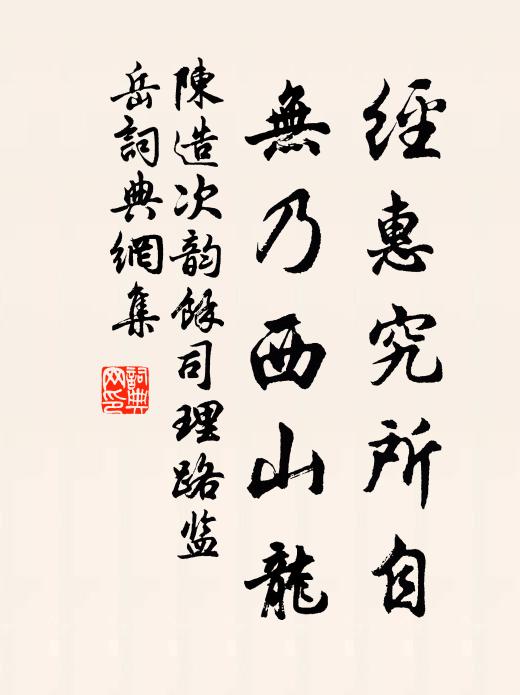 經惠究所自
無乃西山龍
陳造次韵餘司理路監
岳詞典網集
詞典網印